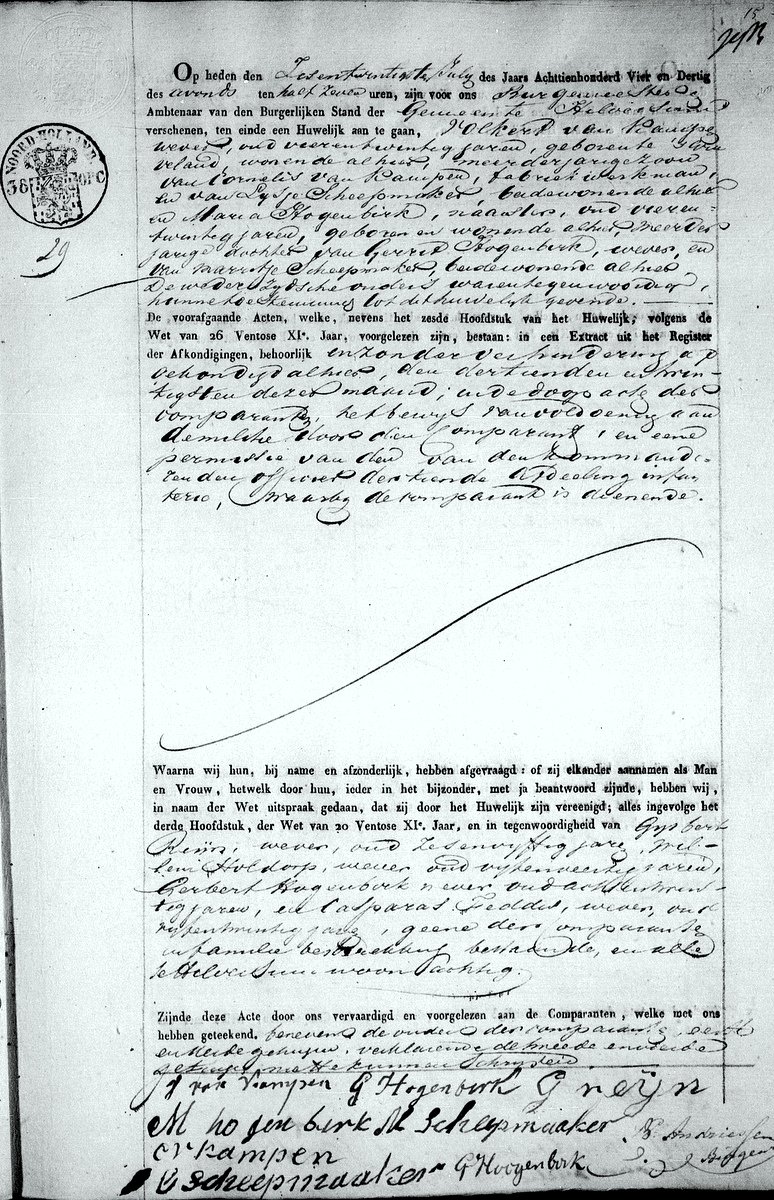 15
NOORD HOLLAND
38
OPC
29
Op heden den Zesentwintigste July des Jaars Achttienhonderd Vier en Dertig
des avonds ten half zeven uren, zijn voor ons Burgemeester
Ambtenaar van den Burgerlijken Stand der Gemeente Hilversum
verschenen, ten einde een Huwelijk aan te gaan, Volkert van Kampen
wever, oud vierentwintig jaren, geboren te
veland, wonende alhier, meerderjarige zoon
van Cornelis van Kampen, fabriekwerkman,
en van Lysje Scheepmaker, beide wonende alhier
en Maria Hogenbirk, naaister, oud vieren-
twintig jaren, geboren en wonende alhier meerder
jarige dochter van Gerrit Hogenbirk, wever, en
van Marretje Scheepmaker, beide wonende alhier
De wederzydsche ouders waren tegenwoordig,
hunne toestemming tot dit huwelijk gevende.
De voorafgaande Acten, welke, nevens het zesde Hoofdstuk van het Huwelijk, volgens de
Wet van 26 Ventose XIe. Jaar, voorgelezen zijn, bestaan: in een Extract uit het Register
der Afkondigingen, behoorlijk en zonder verhindering af
gekondigd alhier, den dertienden en twin-
tigsten dezer maand; in de doop acte der
comparanten, het bewys van voldoening aan
de militie door den Comparant, en eene
permissie van den van den kommande-
renden officier der tiende afdeeling infan
terie, waarby de comparant is dienende.
Waarna wij hun, bij name en afzonderlijk, hebben afgevraagd: of zij elkander aannamen als Man
en Vrouw, hetwelk door hun, ieder in het bijzonder, met ja beantwoord zijnde, hebben wij,
in naam der Wet uitspraak gedaan, dat zij door het Huwelijk zijn vereenigd; alles ingevolge het
derde Hoofdstuk, der Wet van 20 Ventose XIe. Jaar, en in tegenwoordigheid van Gysbert
Reijn, wever, oud zesenvyftig jare, Wil-
lem Holdorp, wever oud vyfenveertig jaren,
Gerbert Hogenbirk wever oud achtentwin-
tig jaren, en Casparas Feddes, wever, oud
vyfentwintig jare, geene der comparante
in familie betrekking bestaande, en alle
te Hilversum woonachtig.
Zijnde deze Acte door ons vervaardigd en voorgelezen aan de Comparanten, welke met ons
hebben geteekend. benevens de ouders der comparante, eerste
en derde getuigen, verklarende de tweede en vierde
getuigen niet te kunnen schryven
V van Kampen G Hogenberk G reÿn
M hogenberk M Scheepmaaker
C v kampen
L Scheepmaaker G Hoogenberk
Andriessen